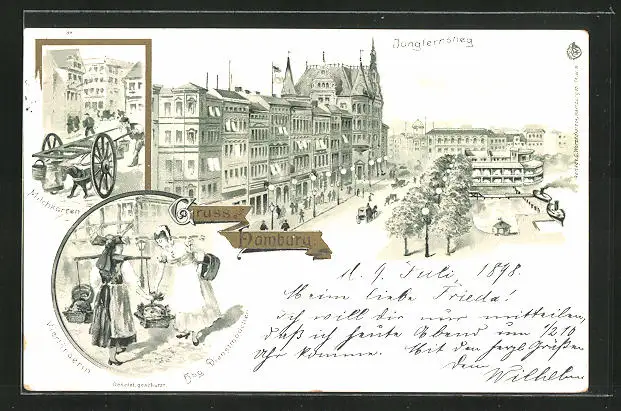 Jungfernstieg
Milchkarren
Gruss aus
Hamburg.
Vierländerin
Hbg. Dienstmädchen
Gesetzl. geschützt.
d. 9. Juli, 1898.
Meine liebe Frieda!
ich will dir nur mitteilen,
daß ich heute Abend um 1/2 10
Uhr komme. Mit den herzl. Grüßen
Dein
Wilhelm